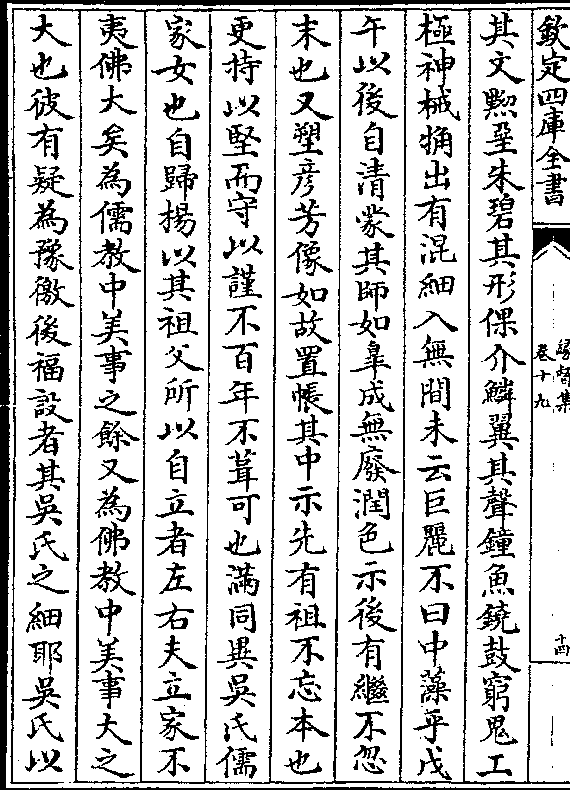 欽定四庫全書
緣督集
卷十九
十四
其文黝堊朱碧其形倮介鱗翼其聲鐘魚鐃鼓窮鬼工
極神械捅出有混細入無間未云巨麗不曰中藻乎戊
午以後自清蒙其師如臯成無廢潤色示後有繼不忽
末也又塑彦芳像如故置帳其中示先有祖不忘本也
更持以堅而守以謹不百年不葺可也滿同異吳氏儒
家女也自歸楊以其祖父所以自立者左右夫立家不
夷佛大矣為儒教中美事之餘又為佛教中美事大之
大也彼有疑為豫徼後福設者其吳氏之細耶吳氏以